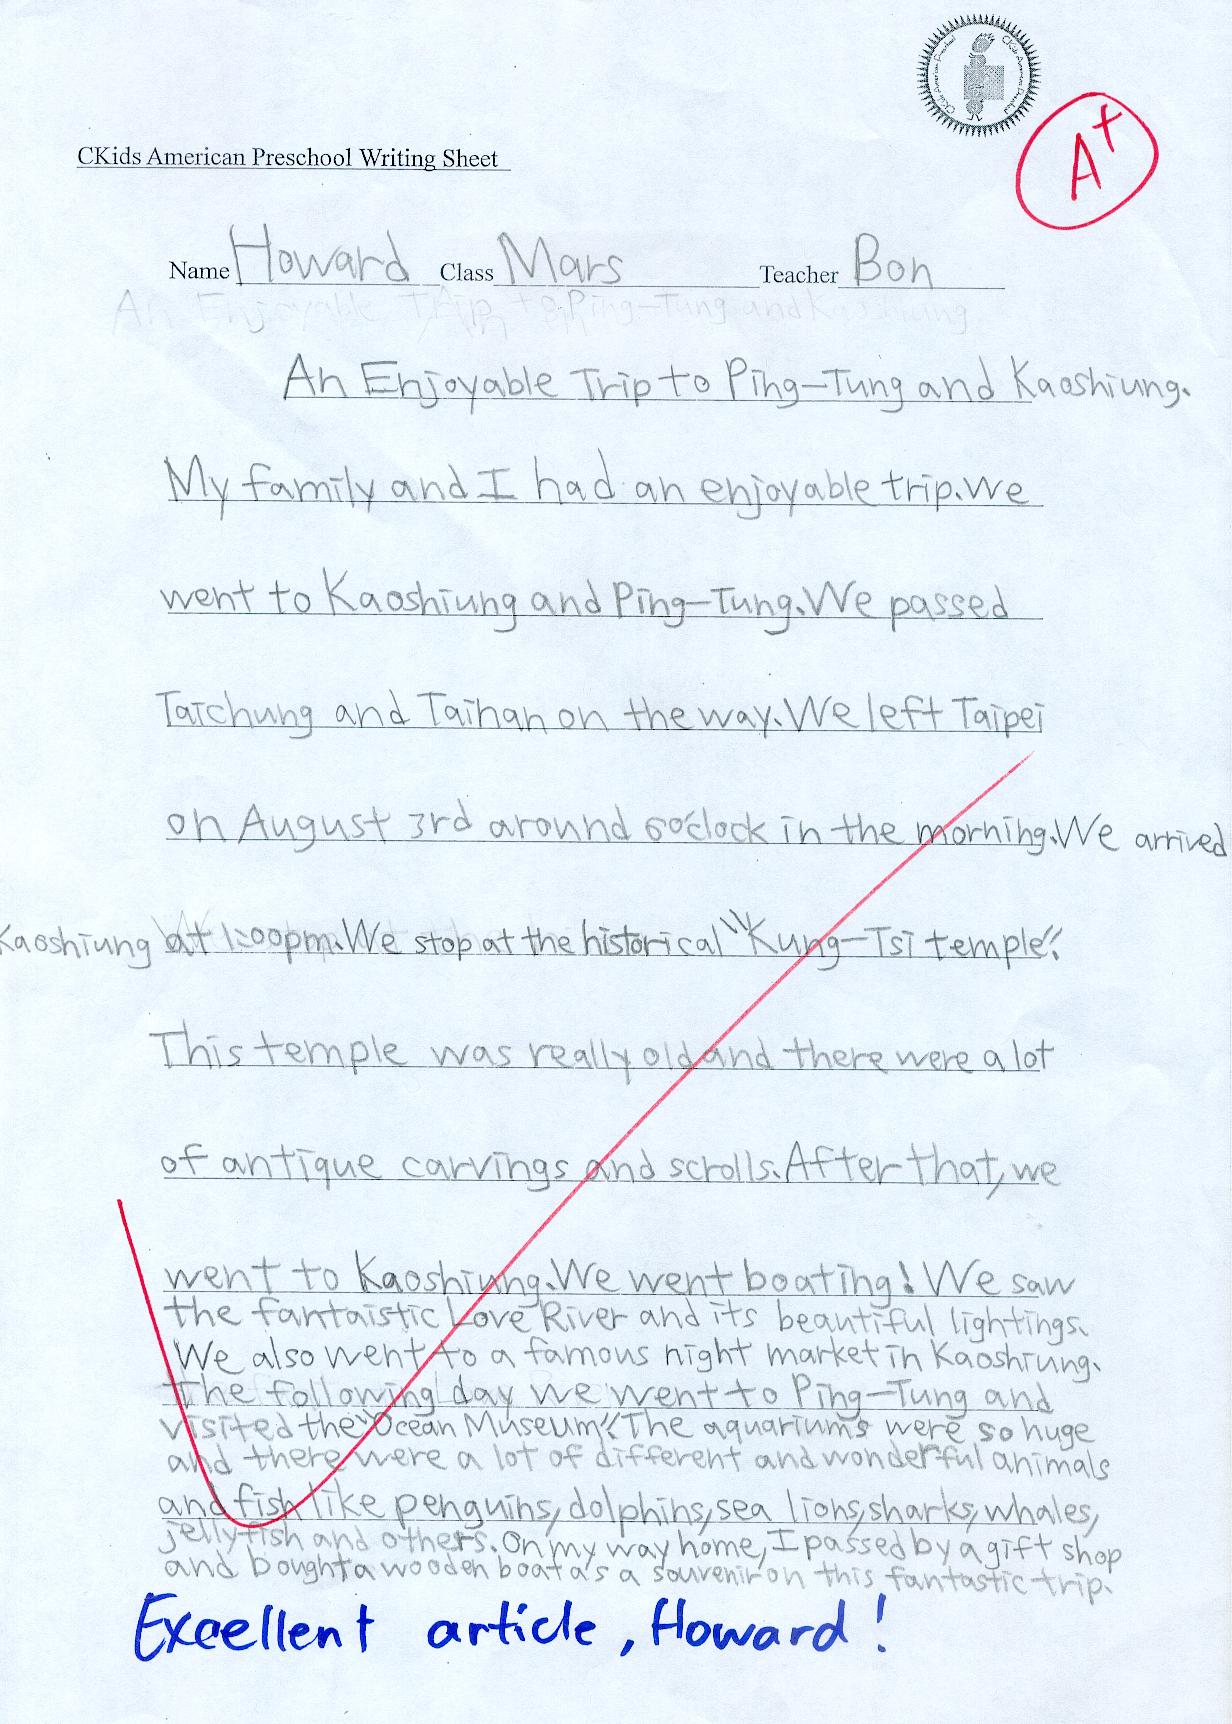 CKids American Preschool Writing Sheet
A+
Name Howard Class Mars Teacher Bon
An Enjoyable Trip to Ping-Tung and Kaoshiung
An Enjoyable Trip to Ping-Tung and Kaoshiung.
My family and I had an enjoyable trip. We
went to Kaoshiung and Ping-Tung. We passed
Taichung and Tainan on the way. We left Taipei
on August 3rd around 6 o'clock in the morning. We arrived
Kaoshiung at 1:00pm. We stop at the historical "Kung-Tsi temple".
This temple was really old and there were a lot
of antique carvings and scrolls. After that, we
went to Kaoshiung. We went boating! We saw
the fantaistic Love River and its beautiful lightings.
We also went to a famous night market in Kaoshiung.
The following day we went to Ping-Tung and
visited the "Ocean Museum". The aquariums were so huge
and there were a lot of different and wonderful animals
and fish like penguins, dolphins, sea lions, sharks, whales,
jellyfish and others. On my way home, I passed by a gift shop
and bought a wooden boat as a souvenir on this fantastic trip.
Excellent article, Howard!